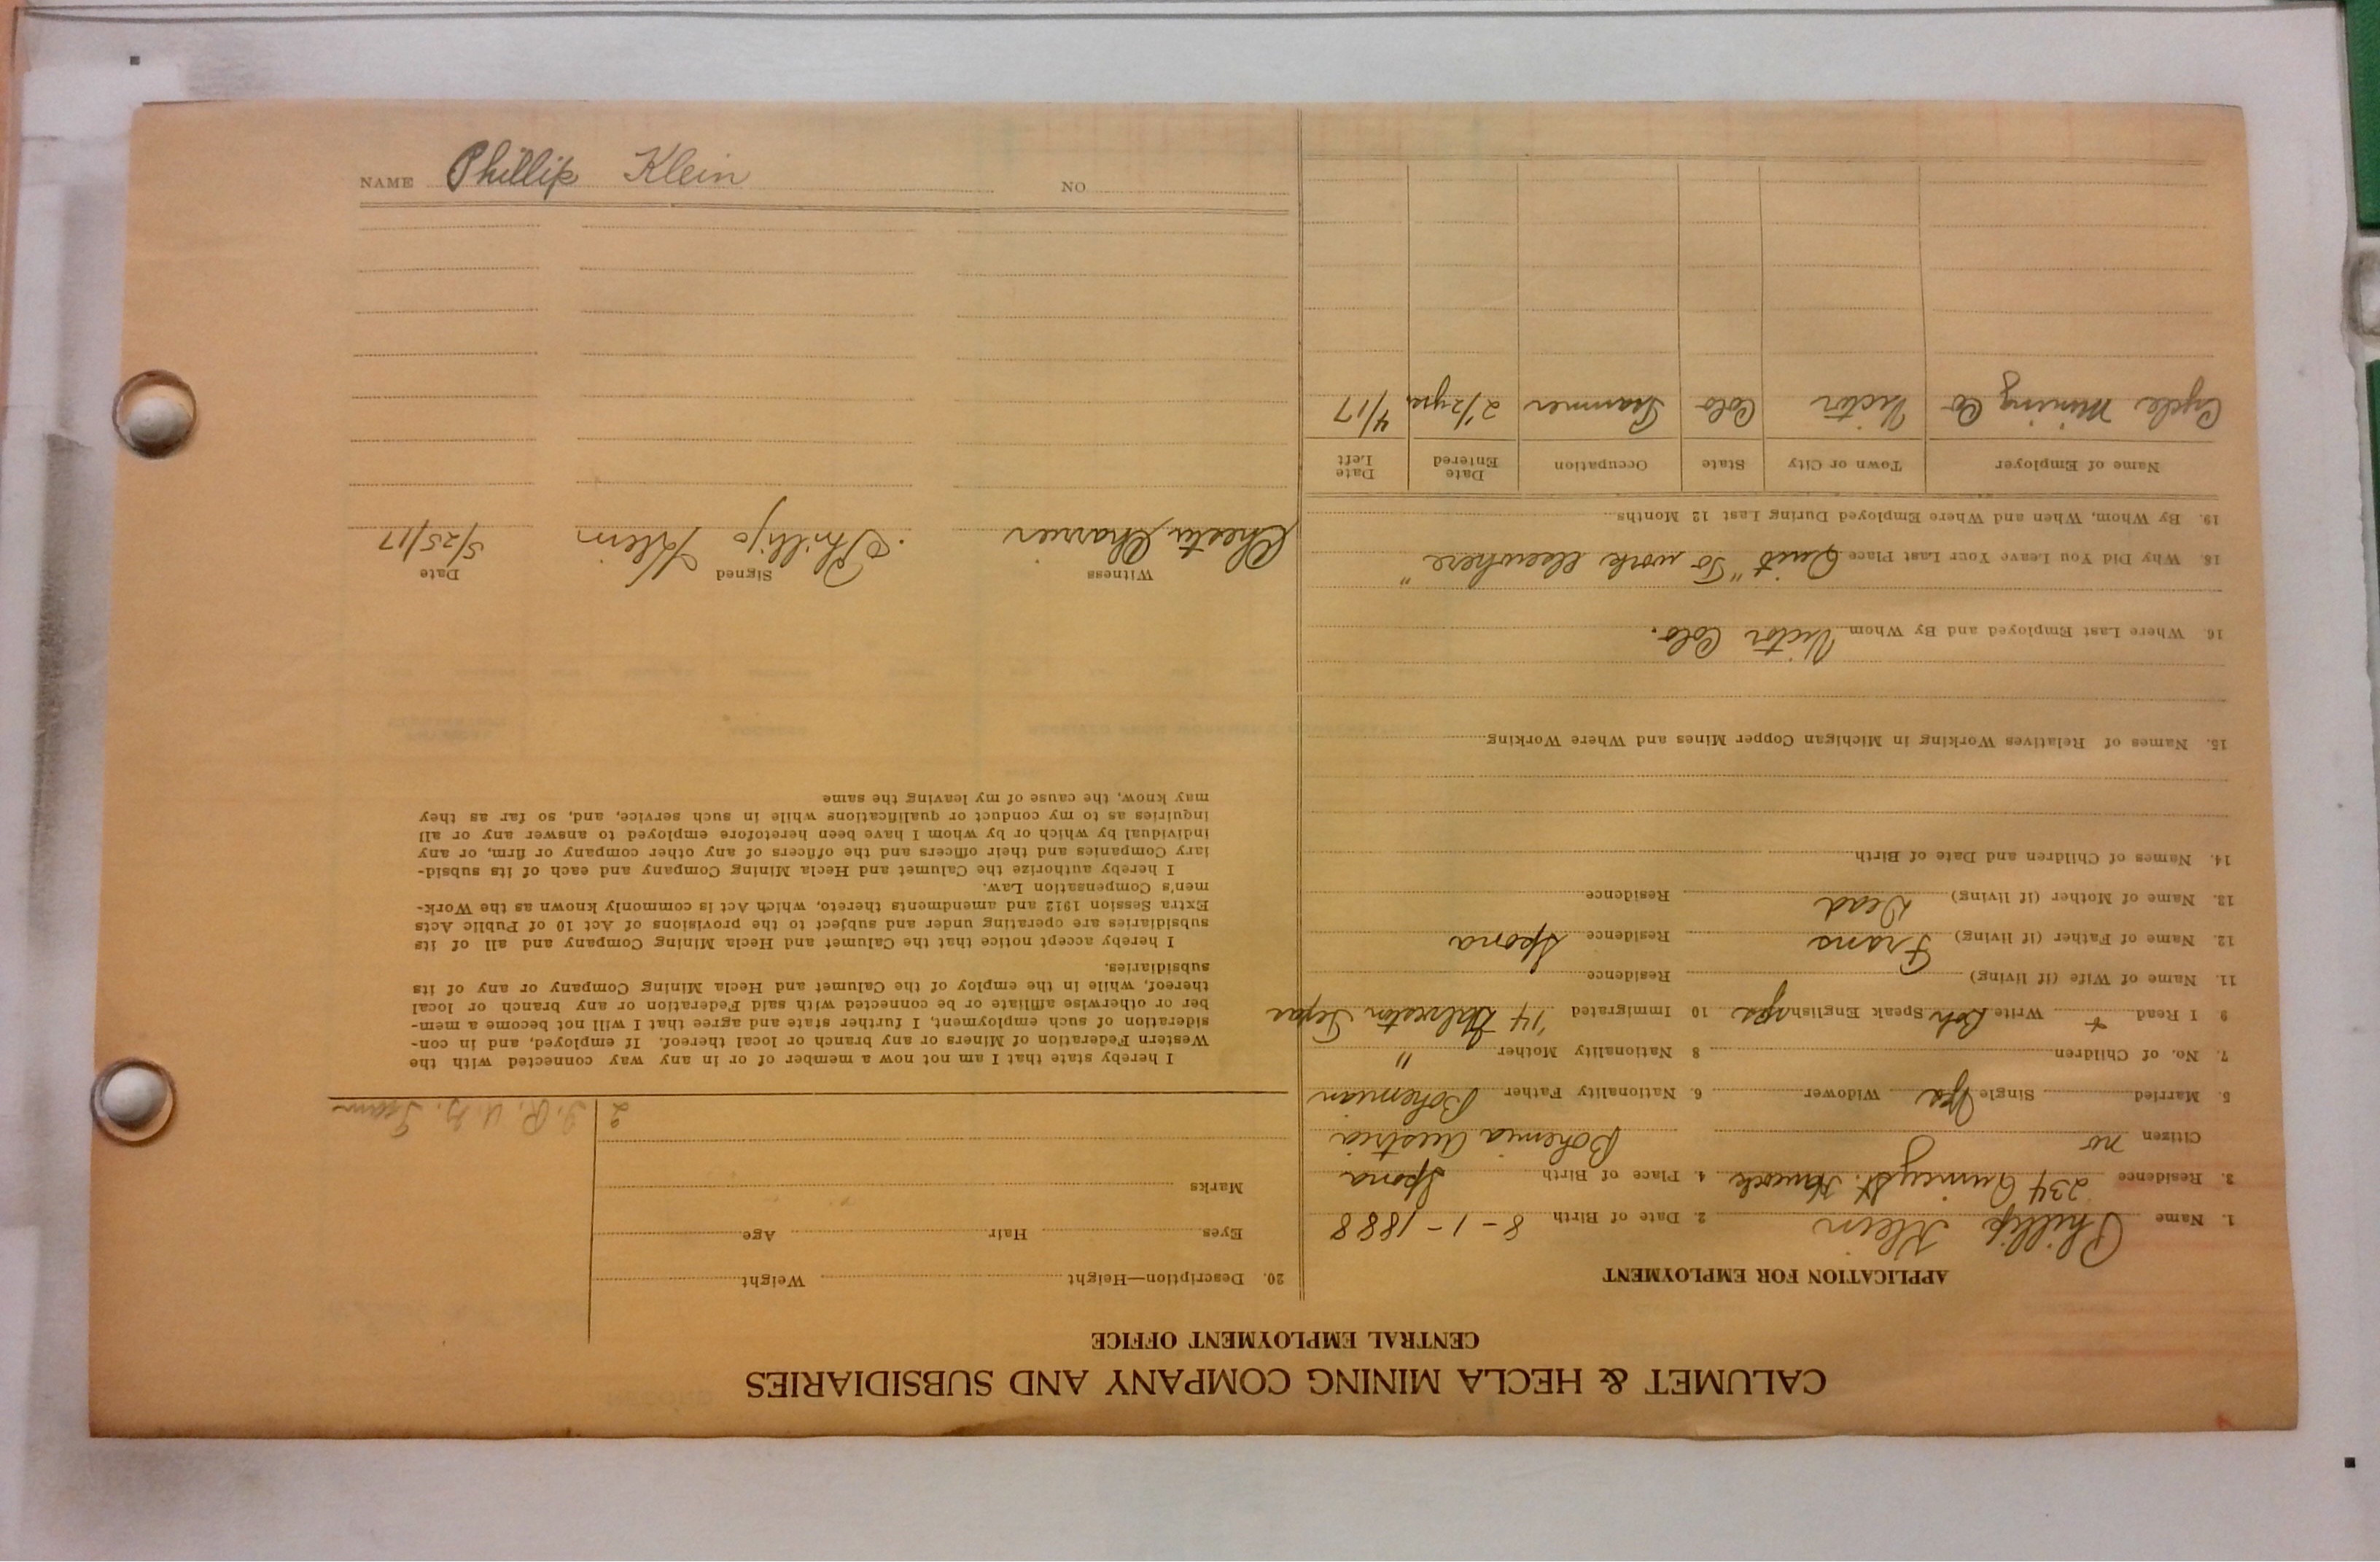 CALUMET & HECLA MINING COMPANY AND SUBSIDIARIES
CENTRAL EMPLOYMENT OFFICE
APPLICATION FOR EMPLOYMENT
1. Name Phillip Klein 2. Date of Birth 8-1-1888
3. Residence 234 Quincy St. Hancock 4. Place of Birth Spona
Citizen no Bohemia Austria
5. Married Single Yes Widower 6. Nationality Father Bohemian
7. No. of Children 8 Nationality Mother "
9 I Read + Write Boh Speak English yes 10 Immigrated '14 Galveston Texas
11. Name of Wife (if living) Residence
12. Name of Father (if living) Frans Residence Spona
13. Name of Mother (if living) Dead Residence
14. Names of Children and Date of Birth
15. Names of Relatives Working in Michigan Copper Mines and Where Working
16. Where Last Employed and By Whom Victor Colo.
18. Why Did You Leave Your Last Place Quit "To work elsewhere"
19. By Whom, When and Where Employed During Last 12 Months
Name of Employer Town or City State Occupation Date Entered Date Left
Cycle Mining Co Victor Colo Trammer 2 1/2 yrs 4/17
20. Description—Height Weight
Eyes Hair Age
Marks
2
I hereby state that I am not now a member of or in any way connected with the
Western Federation of Miners or any branch or local thereof. If employed, and in con-
sideration of such employment, I further state and agree that I will not become a mem-
ber or otherwise affiliate or be connected with said Federation or any branch or local
thereof, while in the employ of the Calumet and Hecla Mining Company or any of its
subsidiaries.
I hereby accept notice that the Calumet and Hecla Mining Company and all of its
subsidiaries are operating under and subject to the provisions of Act 10 of Public Acts
Extra Session 1912 and amendments thereto, which Act is commonly known as the Work-
men's Compensation Law.
I hereby authorize the Calumet and Hecla Mining Company and each of its subsid-
iary Companies and their officers and the officers of any other company or firm, or any
individual by which or by whom I have been heretofore employed to answer any or all
inquiries as to my conduct or qualifications while in such service, and, so far as they
may know, the cause of my leaving the same
Witness Signed Date
Chester Charrier Phillip Klein 5/25/17
NAME Phillip Klein NO